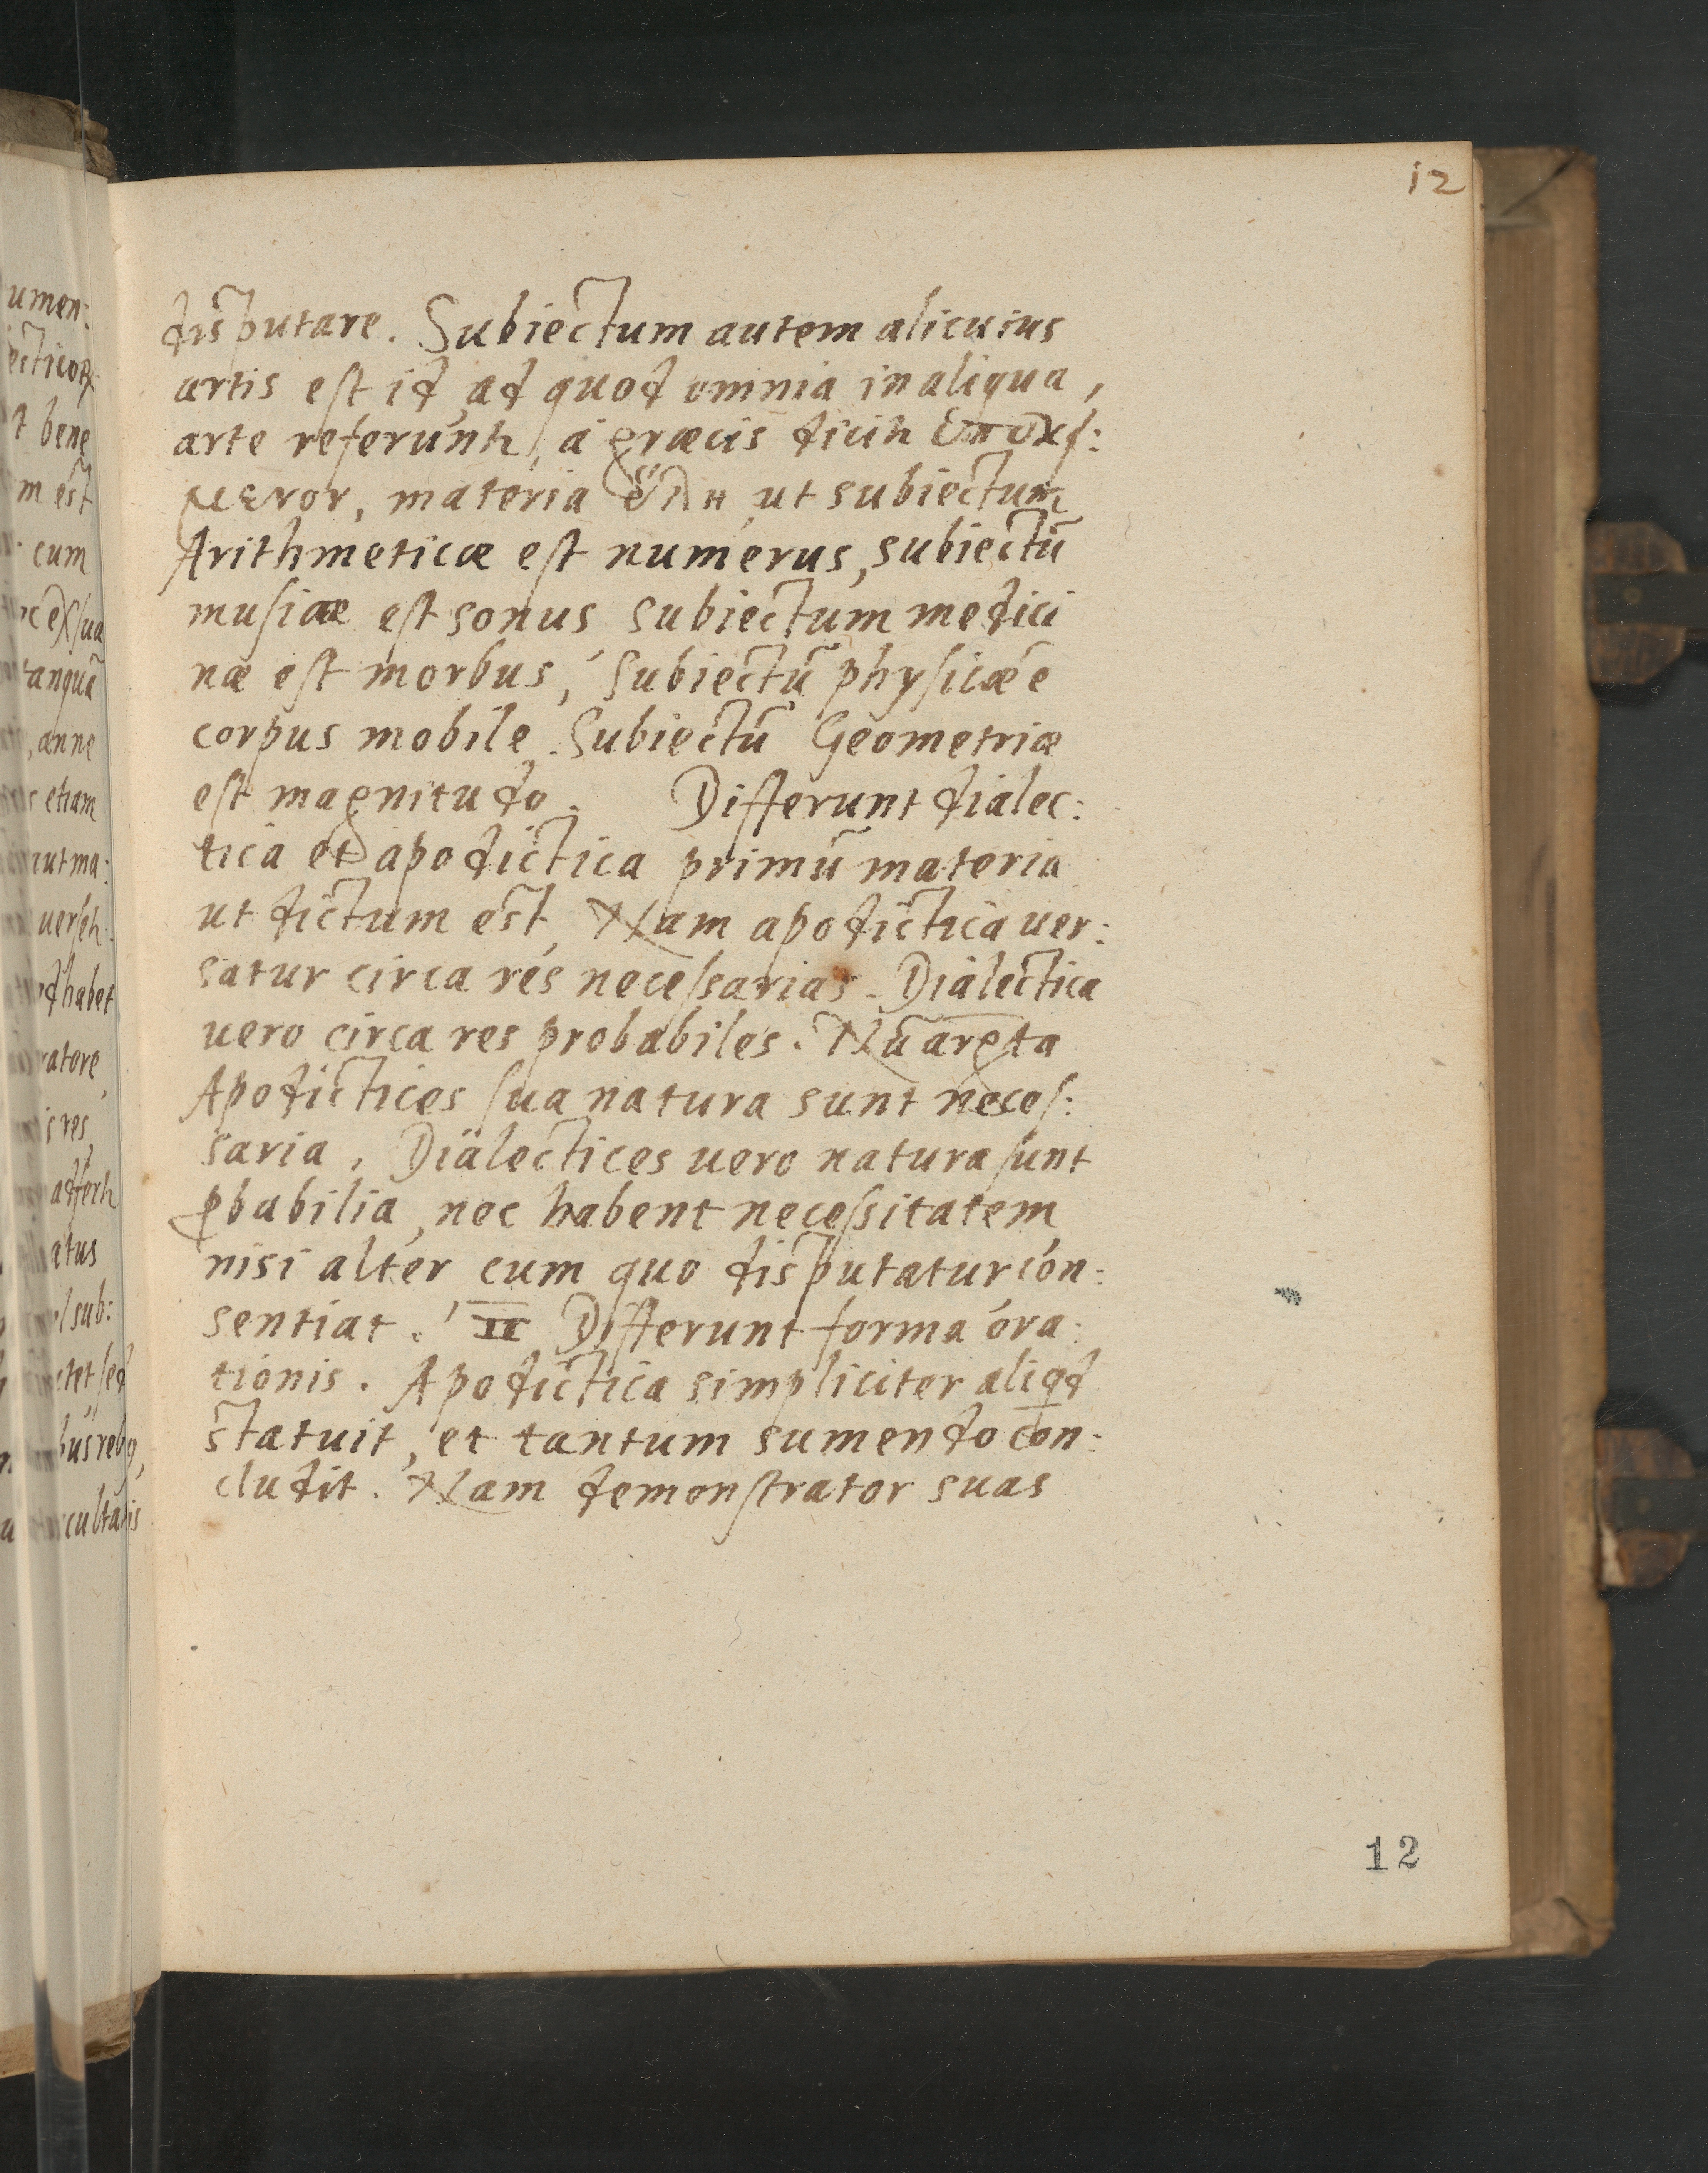 12
disputare. Subiectum autem alicuius
artis est id, ad quod omnia in aliqua,
arte referunt, a græcis dicit ὑποκεί:
μενον, materia ὕλη, ut subiectum
Arithmeticæ est numerus, subiectū
musicæ est sonus subiectum medici
næ est morbus, Subiectū physicæ ē
corpus mobile. Subiectū Geometriæ
est magnitudo. Differunt dialec:
tica et apodictica primū materia
ut dictum est, Nam apodictica uer:
satur circa res necessarias. Dialectica
uero circa res probabiles.
Apodictices sua natura sunt neces:
saria, Dialectices uero natura sunt
ꝓbabilia, nec habent necessitatem,
nisi alter cum quo disputatur con:
sentiat. II Differunt forma ora:
tionis. Apodictica simpliciter aliqd
statuit, et tantum sumendo con:
cludit. Nam demonstrator suas
12
umen:
ecticoꝝ
t bene
m est
cum
ex sua
tanquā
anne
etiam
ut ma:
habet
ratore,
res,
atus
sub: